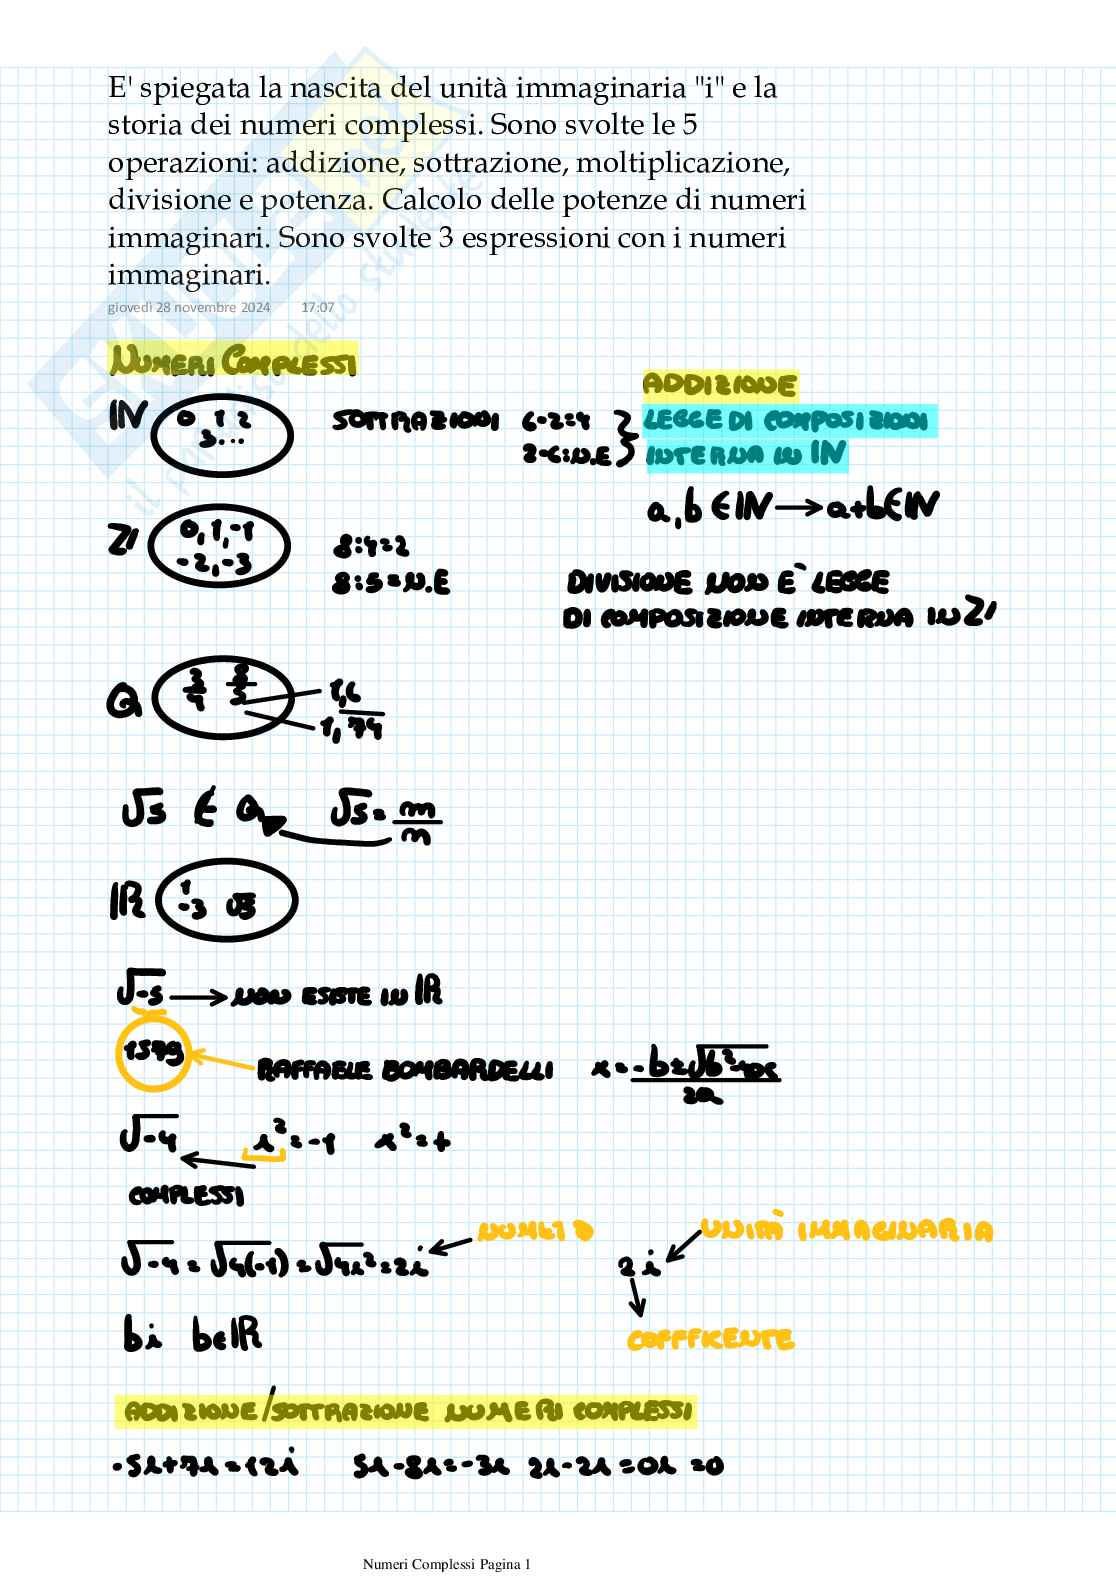 E' spiegata la nascita del unità immaginaria "i" e la
storia dei numeri complessi. Sono svolte le 5
operazioni: addizione, sottrazione, moltiplicazione,
divisione e potenza. Calcolo delle potenze di numeri
immaginari. Sono svolte 3 espressioni con i numeri
immaginari.
giovedì 28 novembre 2024 17:07
NUMERI COMPLESSI
ADDIZIONE
IN 0 1 2
3...
SOTTRAZIONI 6-2=4
2-6=N.E
LEGGE DI COMPOSIZIONI
INTERNA IN IN
a,b ∈ IN → a+b ∈ IN
Z 0,1,-1
-2,-3
8:4=2
8:5=N.E
DIVISIONE NON È LEGGE
DI COMPOSIZIONE INTERNA IN Z
Q 3/4 8/5
1,6
1,74
√5 ∉ Q √5 = m/n
IR
-3 √5
√-5 → NON ESISTE IN IR
1579
RAFFAELE BOMBARDELLI x = -b±√b²-4ac / 2a
√-4 i²=-1 x²=+
COMPLESSI
UNITÀ IMMAGINARIA
√-4 = √4(-1) = √4i² = 2i
2i
bi b∈IR
COFFFICENTE
ADDIZIONE/SOTTRAZIONE NUMERI COMPLESSI
·5i+7i=12i 5i-8i=-3i 2i-2i=0i=0
Numeri Complessi Pagina 1